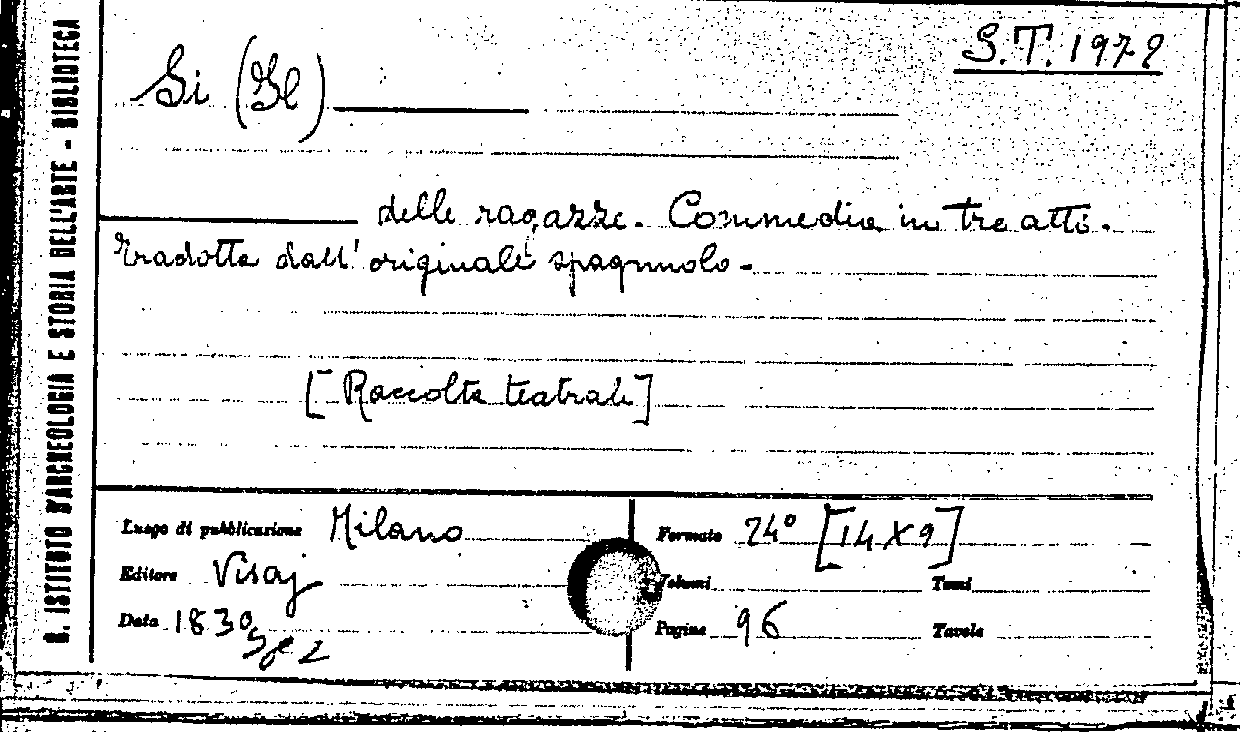 R. ISTITUTO D'ARCHEOLOGIA E STORIA DELL'ARTE - BIBLIOTECA
S.T. 1972
Si (Il)
delle ragazze. Commedia in tre atti.
Tradotta dall' originale spagnuolo.
[Raccolta teatrale]
Luogo di pubblicazione Milano
Formato 24° [14X9]
Editore Visaj
Volumi
Tomi
Data 1830
Pagine 96
Tavole